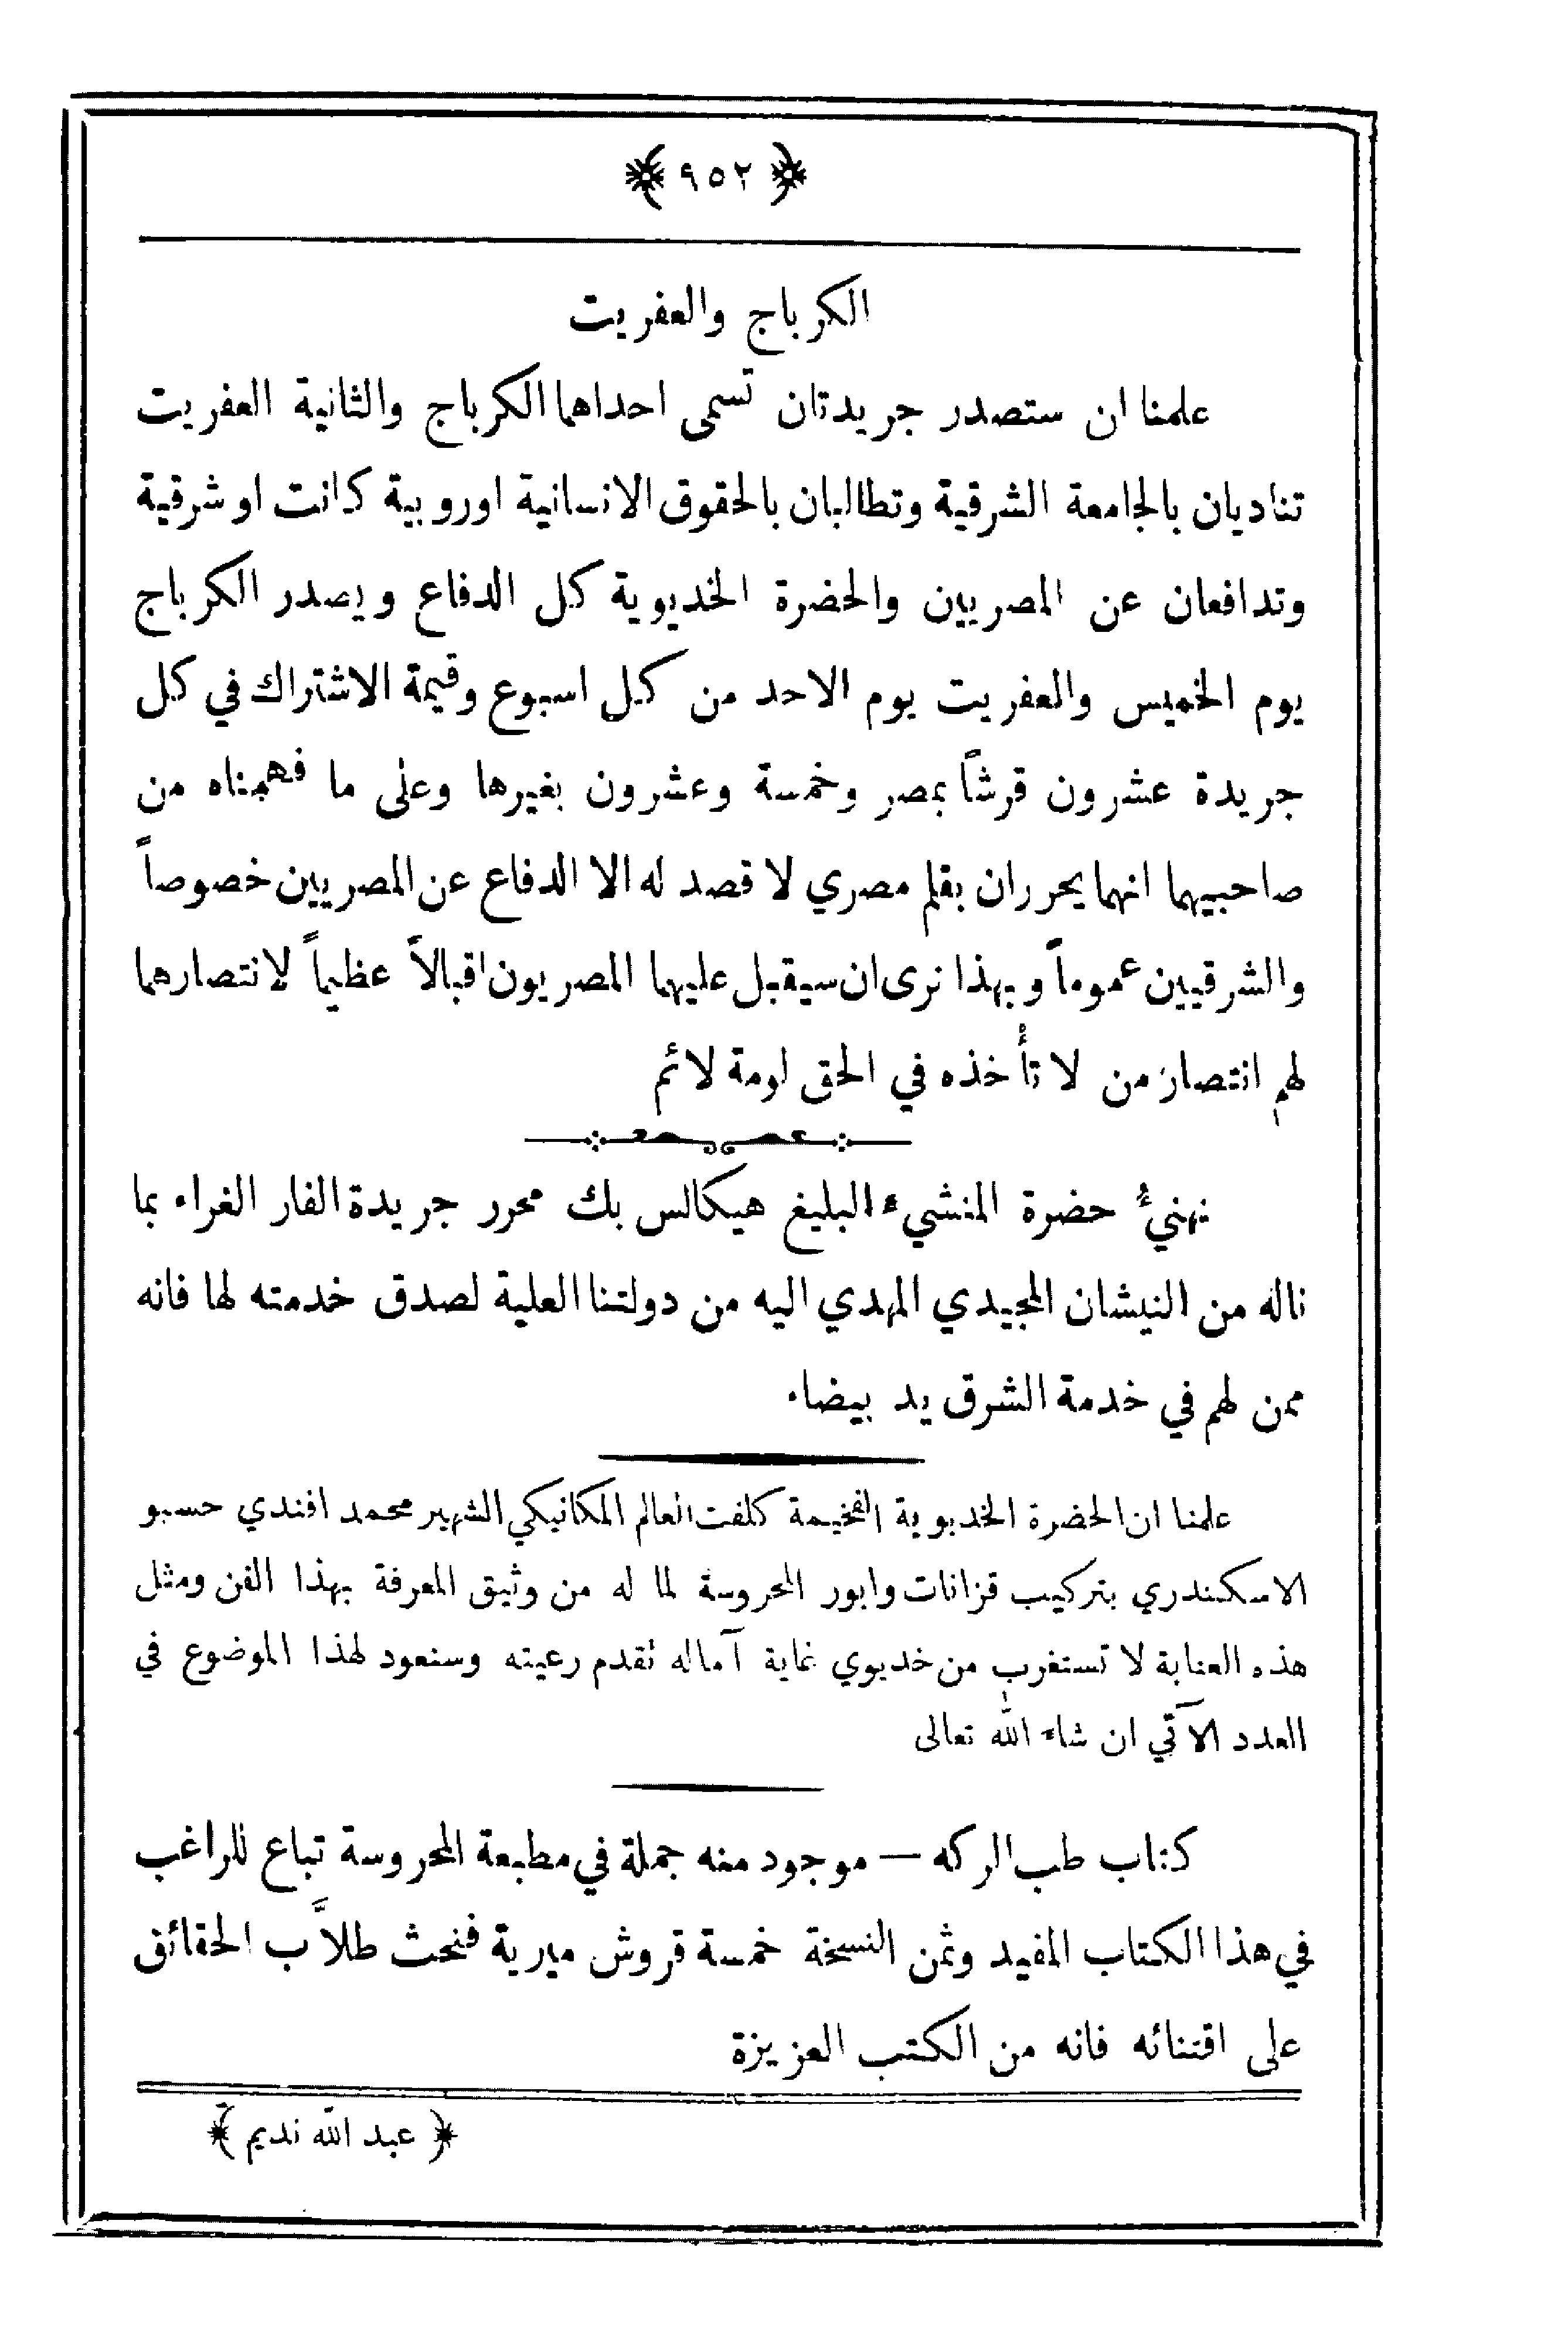 ﴿ ٩٥٢ ﴾
الكرباج والعفريت
علمنا ان ستصدر جريدتان تسمى احداهما الكرباج والثانية العفريت
تناديان بالجامعة الشرقية وتطالبان بالحقوق الانسانية اوروبية كانت او شرقية
وتدافعان عن المصريين والحضرة الخديوية كل الدفاع ويصدر الكرباج
يوم الخميس والعفريت يوم الاحد من كل اسبوع وقيمة الاشتراك في كل
جريدة عشرون قرشاً بمصر وخمسة وعشرون بغيرها وعلى ما فهمناه من
صاحبيهما انهما يحرران بقلم مصري لا قصد له الا الدفاع عن المصريين خصوصاً
والشرقيين عموماً وبهذا نرى ان سيقبل عليهما المصريون اقبالاً عظيماً لانتصارهما
لهم انتصار من لا تأخذه في الحق لومة لائم
نهنيُّ حضرة المنشيء البليغ هيكالس بك محرر جريدة الفار الغراء بما
ناله من النيشان المجيدي المهدي اليه من دولتنا العلية لصدق خدمته لها فانه
ممن لهم في خدمة الشرق يد بيضاء
علمنا ان الحضرة الخديوية الفخيمة كلفت العالم المكانيكي الشهير محمد افندي حسبو
الاسكندري بتركيب قزانات وابور المحروسة لما له من وثيق المعرفة بهذا الفن ومثل
هذه العناية لا تستغرب من خديوي غاية آماله تقدم رعيته وسنعود لهذا الموضوع في
العدد الآتي ان شاء الله تعالى
كتاب طب الركه — موجود منه جملة في مطبعة المحروسة تباع للراغب
في هذا الكتاب المفيد وثمن النسخة خمسة قروش ميرية فنحث طلاَّب الحقائق
على اقتنائه فانه من الكتب العزيزة
﴿ عبد الله نديم ﴾